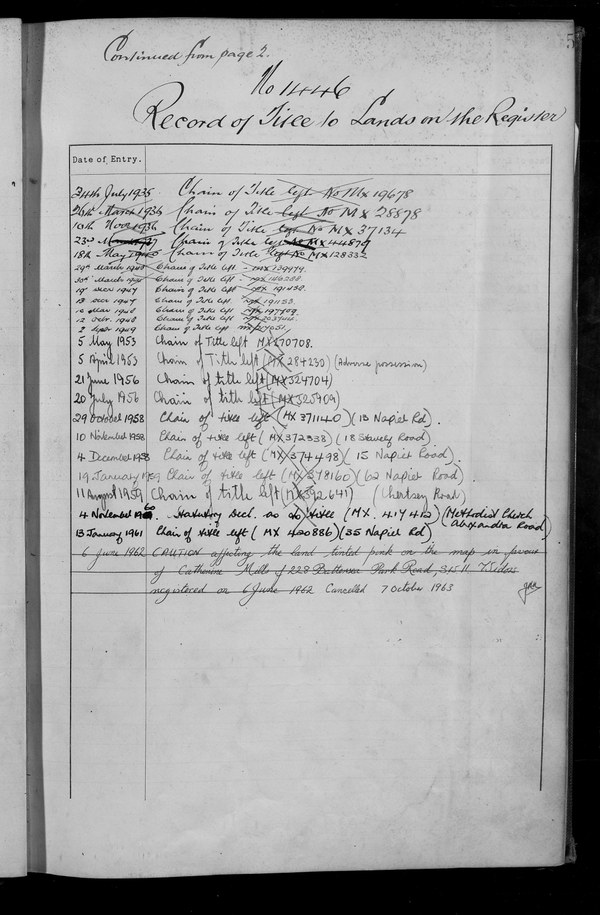 5
Continued from page 2.
No 1446
Record of Title to Lands on the Register
Date of Entry.
24th July 1935 Chain of Title left No MX 19678
26th March 1936 Chain of Title left No MX 28878
10th Novr 1936 Chain of Title left No MX 37134
23rd Chain of Title left No MX 44879
18th May Chain of Title left No MX 128332
29th March Chain of Title left - MX
30th March Chain of Title left - MX
19 1947 Chain of Title left MX 191430
18 Decr 1947 Chain of Title left MX 191153
10 1948 Chain of Title left MX
12 1948 Chain of Title left MX
2 Septr 1949 Chain of Title left MX
5 May 1953 Chain of Title left MX 270708.
5 April 1953 Chain of Title left (MX 284230) (Adverse possession)
21 June 1956 Chain of title left (MX 324704)
20 July 1956 Chain of title left (MX 325909)
29 October 1958 Chain of title left (MX 371140) (13 Napier Rd).
10 November 1958 Chain of title left (MX 372338) (18 Road)
4 December 1958 Chain of title left (MX 374498) (15 Napier Road).
19 January 1959 Chain of title left (MX 378160) (62 Napier Road)
11 August 1959 Chain of title left (MX 392641) (Chertsey Road)
4 November 1960 Statutory Decl. as to title (MX. 417412) (Methodist Church
Alexandra Road)
13 January 1961 Chain of title left (MX 420886) (35 Napier Rd)
6 June 1962 CAUTION affecting the land tinted pink on the map in favour
of Catherine Mills of 228 Battersea Park Road, S.W.11 Widow
registered on 6 June 1962 Cancelled 7 October 1963